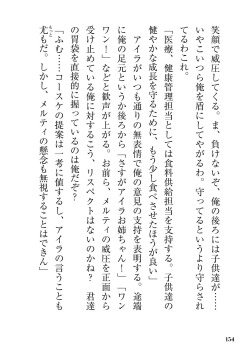 笑顔で威圧してくる。ま、負けないぞ、俺の後ろには子供達が……
いやこいつら俺を盾にしてやがるわ。守ってるというより守らされ
てるわこれ。
「医療、健康管理担当としては食料供給担当を支持する。子供達の
健やかな成長を守るために、もう少し食べさせたほうが良い」
　アイラがいつも通りの無表情で俺の意見の支持を表明する。途端
に俺の足元というか後ろから「さすがアイラお姉ちゃん！」「ワン
ワン！」などと歓声が上がる。お前ら、メルティの威圧を正面から
受け止めている俺に対するこう、リスペクトはないのかね？　君達
の胃袋を直接的に握っているのは俺だぞ？
「ふむ……コースケの提案は一考に値するし、アイラの言うことも
尤もだ。しかし、メルティの懸念も無視することはできん」
もっと
154